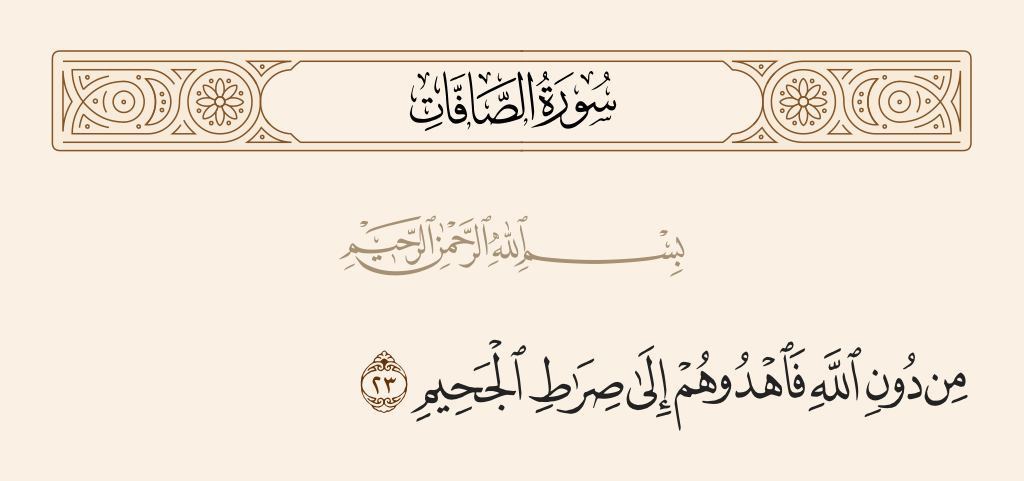 سُورَةُ الصَّافَّاتِ
بِسْمِ ٱللَّهِ ٱلرَّحْمَٰنِ ٱلرَّحِيمِ
مِن دُونِ ٱللَّهِ فَٱهْدُوهُمْ إِلَىٰ صِرَٰطِ ٱلْجَحِيمِ ٢٣